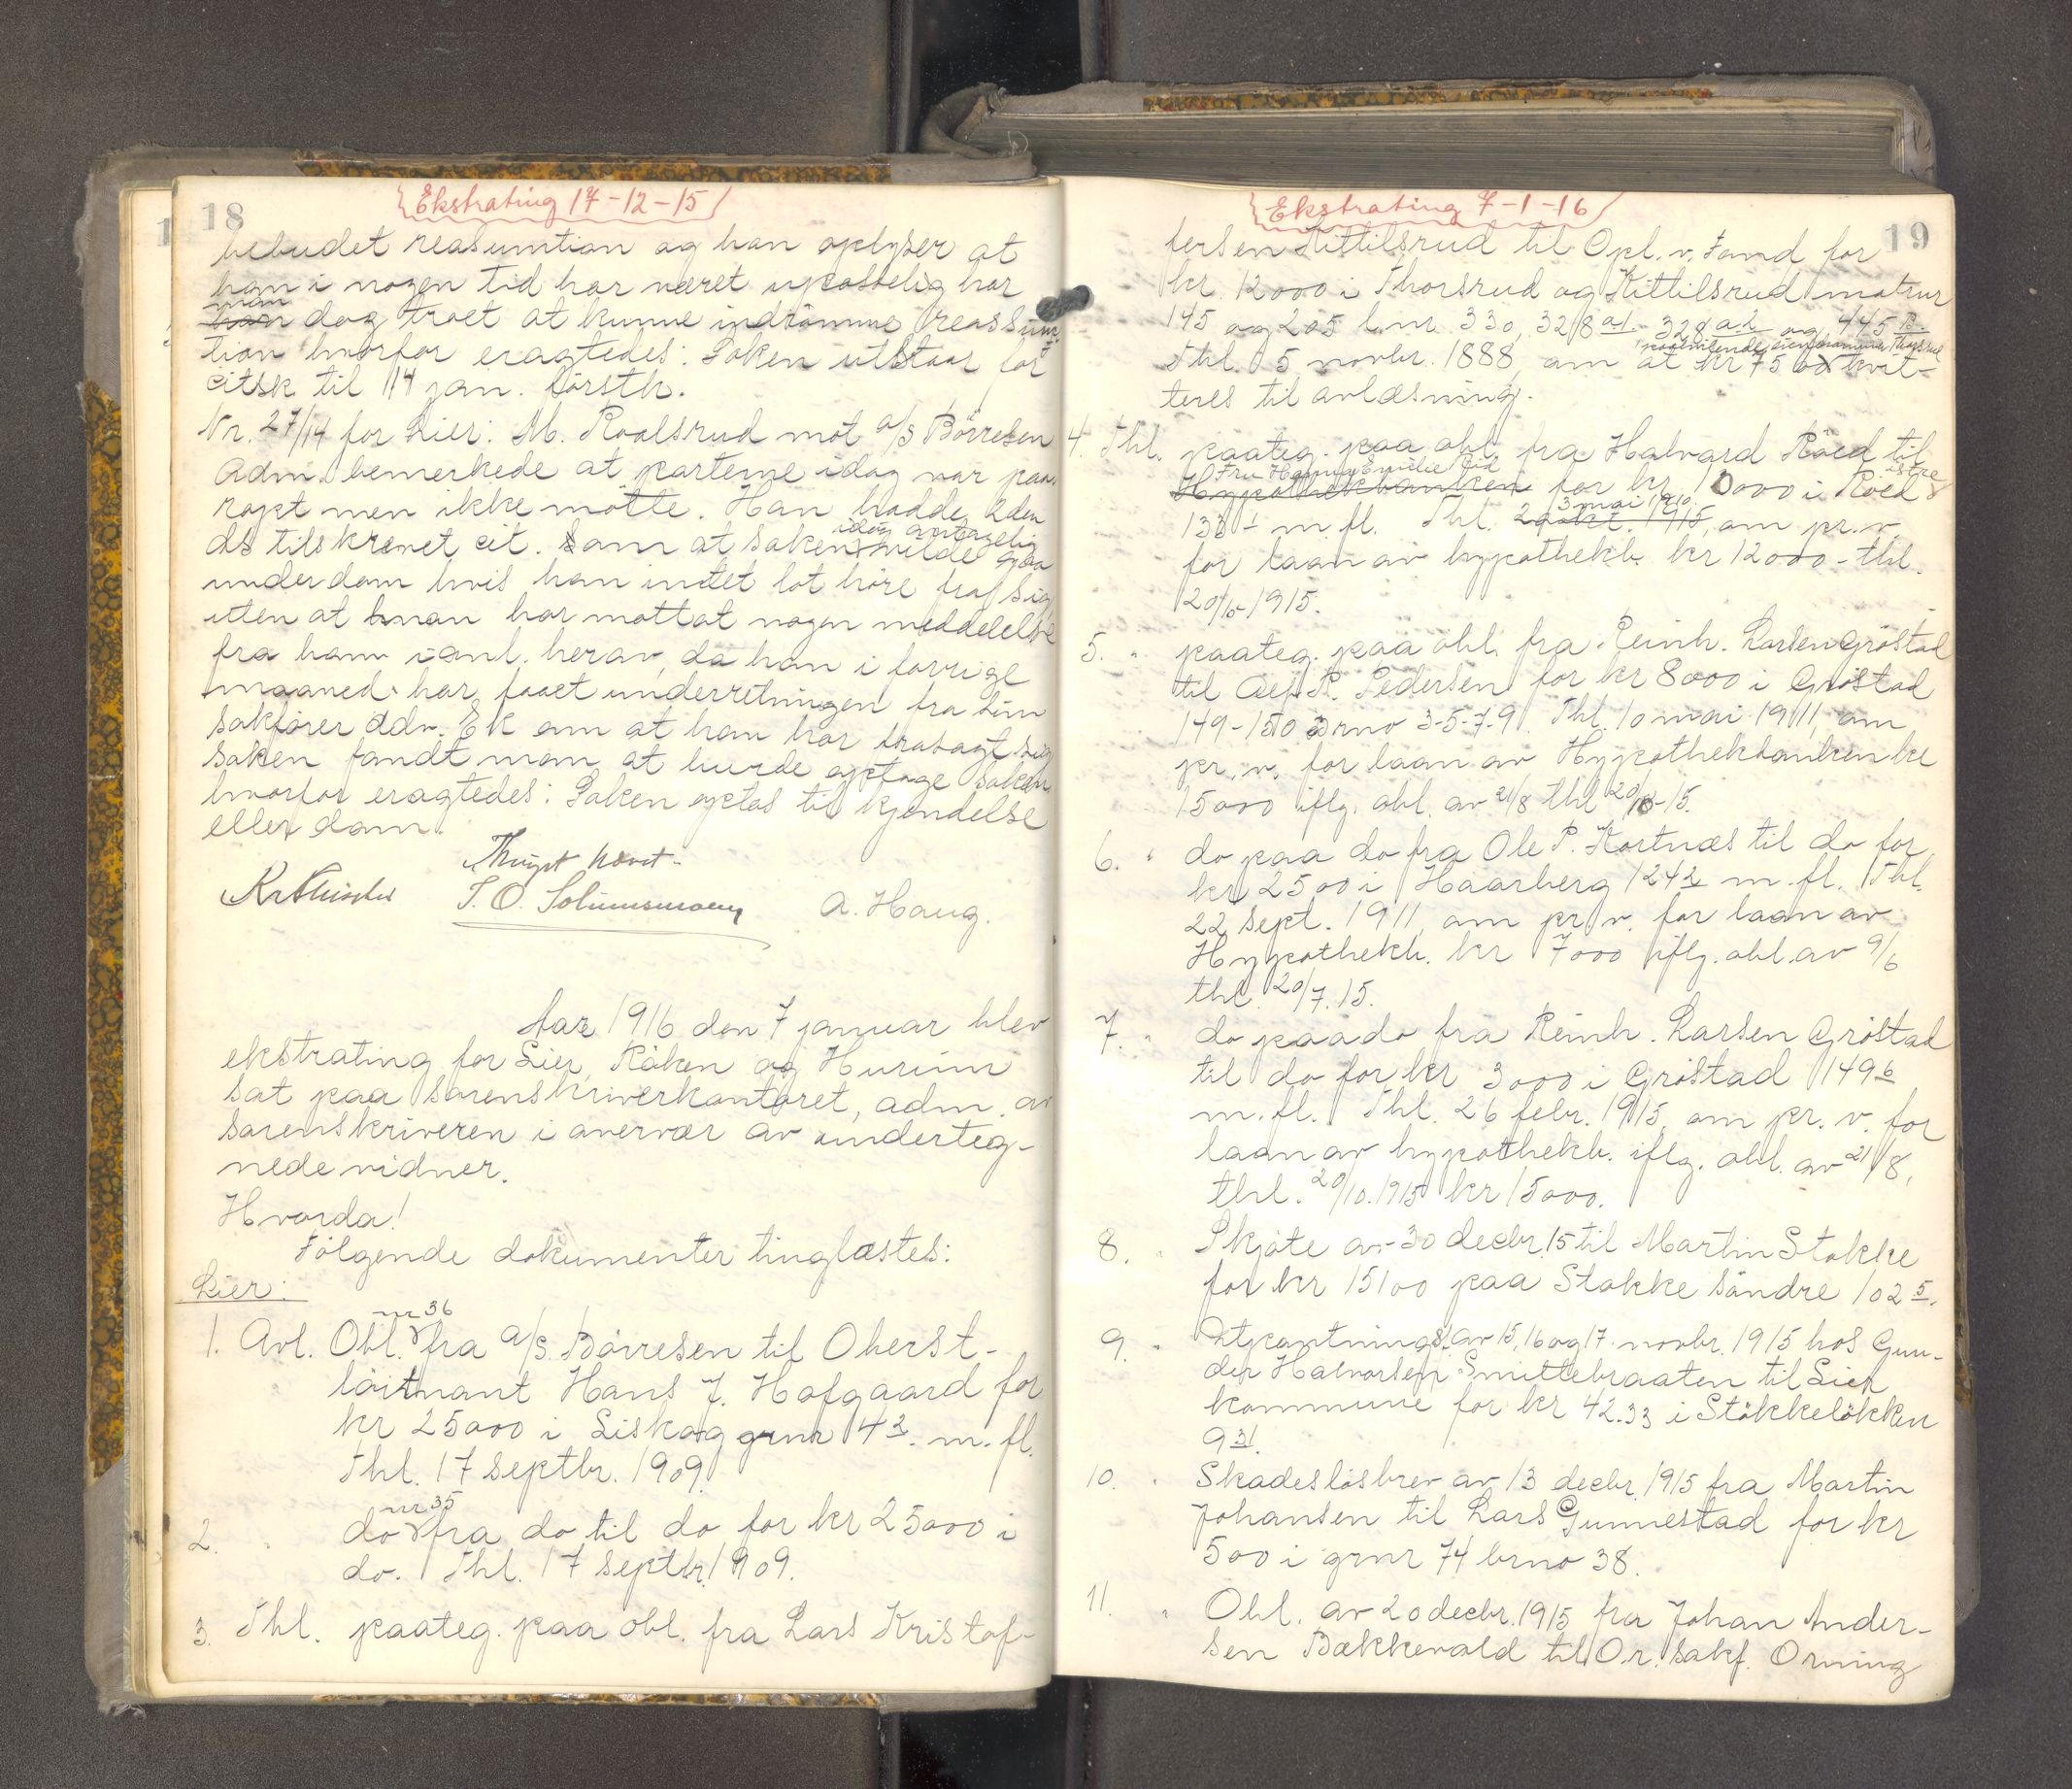 18
Ekstrating 17-12-15
bebudet reasumtion og han oplyser at
han i nogen tid har været upasselig har
man
han dog troet at kunne indrömme reassum-
tion hvorfor eragtedes: Saken utstaar for
citsk til 14 jan. förstk.
Nr. 27/14 for Lier: M. Roalsrud mot a/s Börresen
Adm. bemerkede at parterne idag var paa-
ropt men ikke mötte. Han hadde 2den
idag antagelig
ds tilskrevet cit. om at saken vilde gaa
under dom hvis han intet lot höre fra sig
uten at man har mottat nogen meddelelse
fra ham i anl. herav, da han i forrige
maaned har faaet underretningen fra sin
sakförer adv. Ek om at han har frasagt sig
saken fandt man at burde optage saken
hvorfor eragtedes: Saken optas til kjendelse
eller dom.
Tinget hævet.
A. Haug.
Aar 1916 den 7 januar blev
ekstrating for Lier, Röken og Hurum
sat paa sorenskriverkontoret, adm. av
sorenskriveren i overvær av underteg-
nede vidner.
Hvorda!
Fölgende dokumenter tinglæstes:
Lier:
nr 36
1. Avl. Obl. fra a/s. Börresen til Oberst-
löitnant Hans J. Hofgaard for
kr 25000 i Liskog grnr 43. m. fl.
Thl. 17 septbr. 1909.
nr 35
2. " do fra do til do for kr 25000 i
do. Thl. 17 septbr. 1909.
3. Thl. paateg. paa obl. fra Lars Kristof-
19
Ekstrating 7-1-16
fersen Kittilsrud til Opl. v. Fond for
kr. 12000 i Thorsrud og Kittilsrud matrnr
145 og 205 l. nr. 330, 328 a1. 328 a.2 og 445 B.
Thl. 5 novbr. 1888, om at kr 75 kvit-
teres til avlæsning.
4. Thl. paateg. paa obl. fra Halvard Röed til
Fru Hanna Emilie Eid
Hypothekbanken for kr 10000 i Röed östre
3 mai 1910
133 1 m. fl. Thl. 20 okt. 1915, om pr. v.
for laan av hypothekb. kr 12000 - thl.
20/10-1915.
5. " paateg. paa obl. fra Reinh. Larsen Gröstad
til P. Pedersen for kr 8000 i Gröstad
149-150 brno 3-5-7-9. Thl. 10 mai 1911, om
pr. v. for laan av Hypothekbanken kr
15000 iflg. obl. av 21/8 thl 20/10-15.
6. " do paa do fra Ole P. Kortnæs til do for
kr 2500 i Haarberg 1242 m. fl. Thl.
22 sept. 1911, om pr. v. for laan av
Hypothekb. kr 7000 iflg. obl. av 9/6
thl. 20/7. 15.
7. " do paa do fra Reinh. Larsen Gröstad
til do for kr 3000 i Gröstad 1496
m. fl. Thl. 26 febr. 1915, om pr. v. for
laan av hypothekb. iflg. obl. av 21/8,
thl. 20/10. 1915 kr 15000.
8. " Skjöte av 30 decbr. 15 til Martin Stokke
for kr 15100 paa Stokke söndre 102 5.
9. " Utpantnings. av 15, 16 og 17. novbr. 1915 hos Gun-
der Halvorsen Smittebraaten til Lier
kommune for kr 42.33 i Stökkelökken
9 31.
10. " Skadeslösbrev av 13 decbr. 1915 fra Martin
Johansen til Lars Gunnestad for kr
500 i grnr 74 brno 38.
11. " Obl. av 20 decbr. 1915 fra Johan Ander-
sen Bækkevold til O.r. sakf. Orning